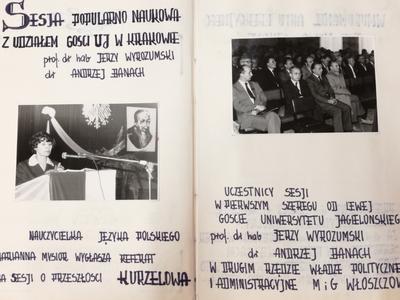 SESJA POPULARNO NAUKOWA
Z UDZIAŁEM GOŚCI UJ W KRAKOWIE
prof. dr hab JERZY WYROZUMSKI
dr ANDRZEJ BANACH
NAUCZYCIELKA JĘZYKA POLSKIEGO
MARIANNA MYSIOR WYGŁASZA REFERAT
NA SESJI O PRZESZŁOŚCI KURZELOWA
UCZESTNICY SESJI
W PIERWSZYM SZEREGU OD LEWEJ
GOŚCIE UNIWERSYTETU JAGIELOŃSKIEGO
prof. dr hab JERZY WYROZUMSKI
dr ANDRZEJ BANACH
W DRUGIM RZĘDZIE WŁADZE POLITYCZNE
I ADMINISTRACYJNE M i G WŁOSZCZOW